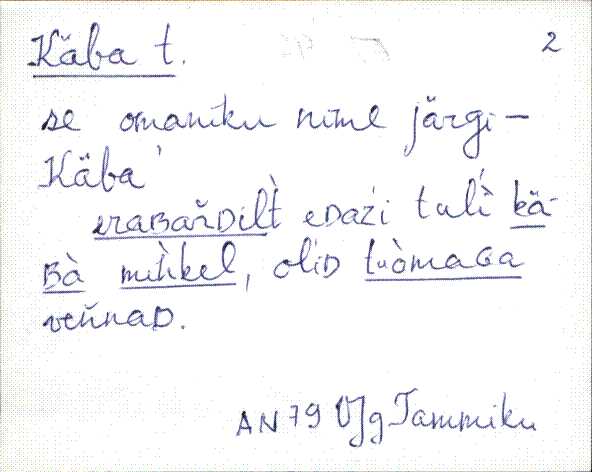 Käba t. 2
se omaniku nime järgi –
Käba'
eraʙařᴅilt̀ eᴅaźi tuli kä-
ʙà mihkel, olìᴅ tuòmaɢa
veňnaᴅ.
AN 79 Vjg Tammiku